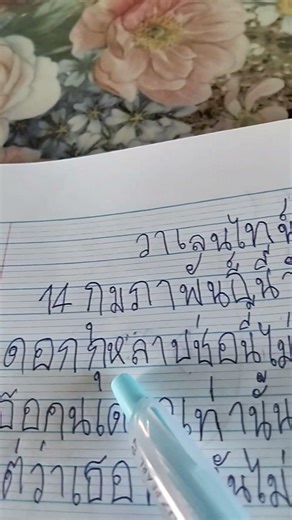 วาเลนไทน์
14 กุมภาพันธ์นี้
ดอกกุหลาบช่อนี้ไม่
คนเดียวเท่านั้น
ว่าเธอ ไม่